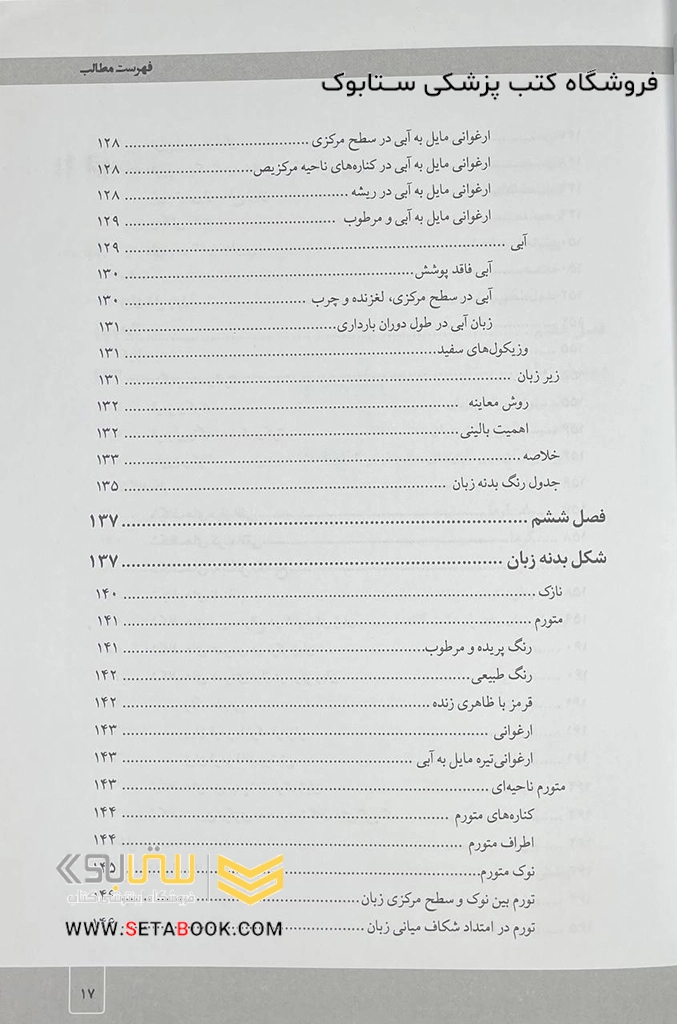 فهرست مطالب
فروشگاه کتب پزشکی ستابوک
ارغوانی مایل به آبی در سطح مرکزی ........ ۱۲۸
ارغوانی مایل به آبی در کناره‌های ناحیه مرکزیص ........ ۱۲۸
ارغوانی مایل به آبی در ریشه ........ ۱۲۸
ارغوانی مایل به آبی و مرطوب ........ ۱۲۹
آبی ........ ۱۲۹
آبی فاقد پوشش ........ ۱۳۰
آبی در سطح مرکزی، لغزنده و چرب ........ ۱۳۰
زبان آبی در طول دوران بارداری ........ ۱۳۱
وزیکول‌های سفید ........ ۱۳۱
زیر زبان ........ ۱۳۱
روش معاینه ........ ۱۳۲
اهمیت بالینی ........ ۱۳۲
خلاصه ........ ۱۳۳
جدول رنگ بدنه زبان ........ ۱۳۵
فصل ششم ........ ۱۳۷
شکل بدنه زبان ........ ۱۳۷
نازک ........ ۱۴۰
متورم ........ ۱۴۱
رنگ پریده و مرطوب ........ ۱۴۱
رنگ طبیعی ........ ۱۴۲
قرمز با ظاهری زنده ........ ۱۴۲
ارغوانی ........ ۱۴۳
ارغوانی‌تیره مایل به آبی ........ ۱۴۳
متورم ناحیه‌ای ........ ۱۴۳
کناره‌های متورم ........ ۱۴۴
اطراف متورم ........ ۱۴۴
نوک متورم ........ ۱۴۵
تورم بین نوک و سطح مرکزی زبان ........ ۱۴۶
تورم در امتداد شکاف میانی زبان ........ ۱۴۶
ستابوک
فروشگاه اینترنتی کتاب
WWW.SETABOOK.COM
۱۷